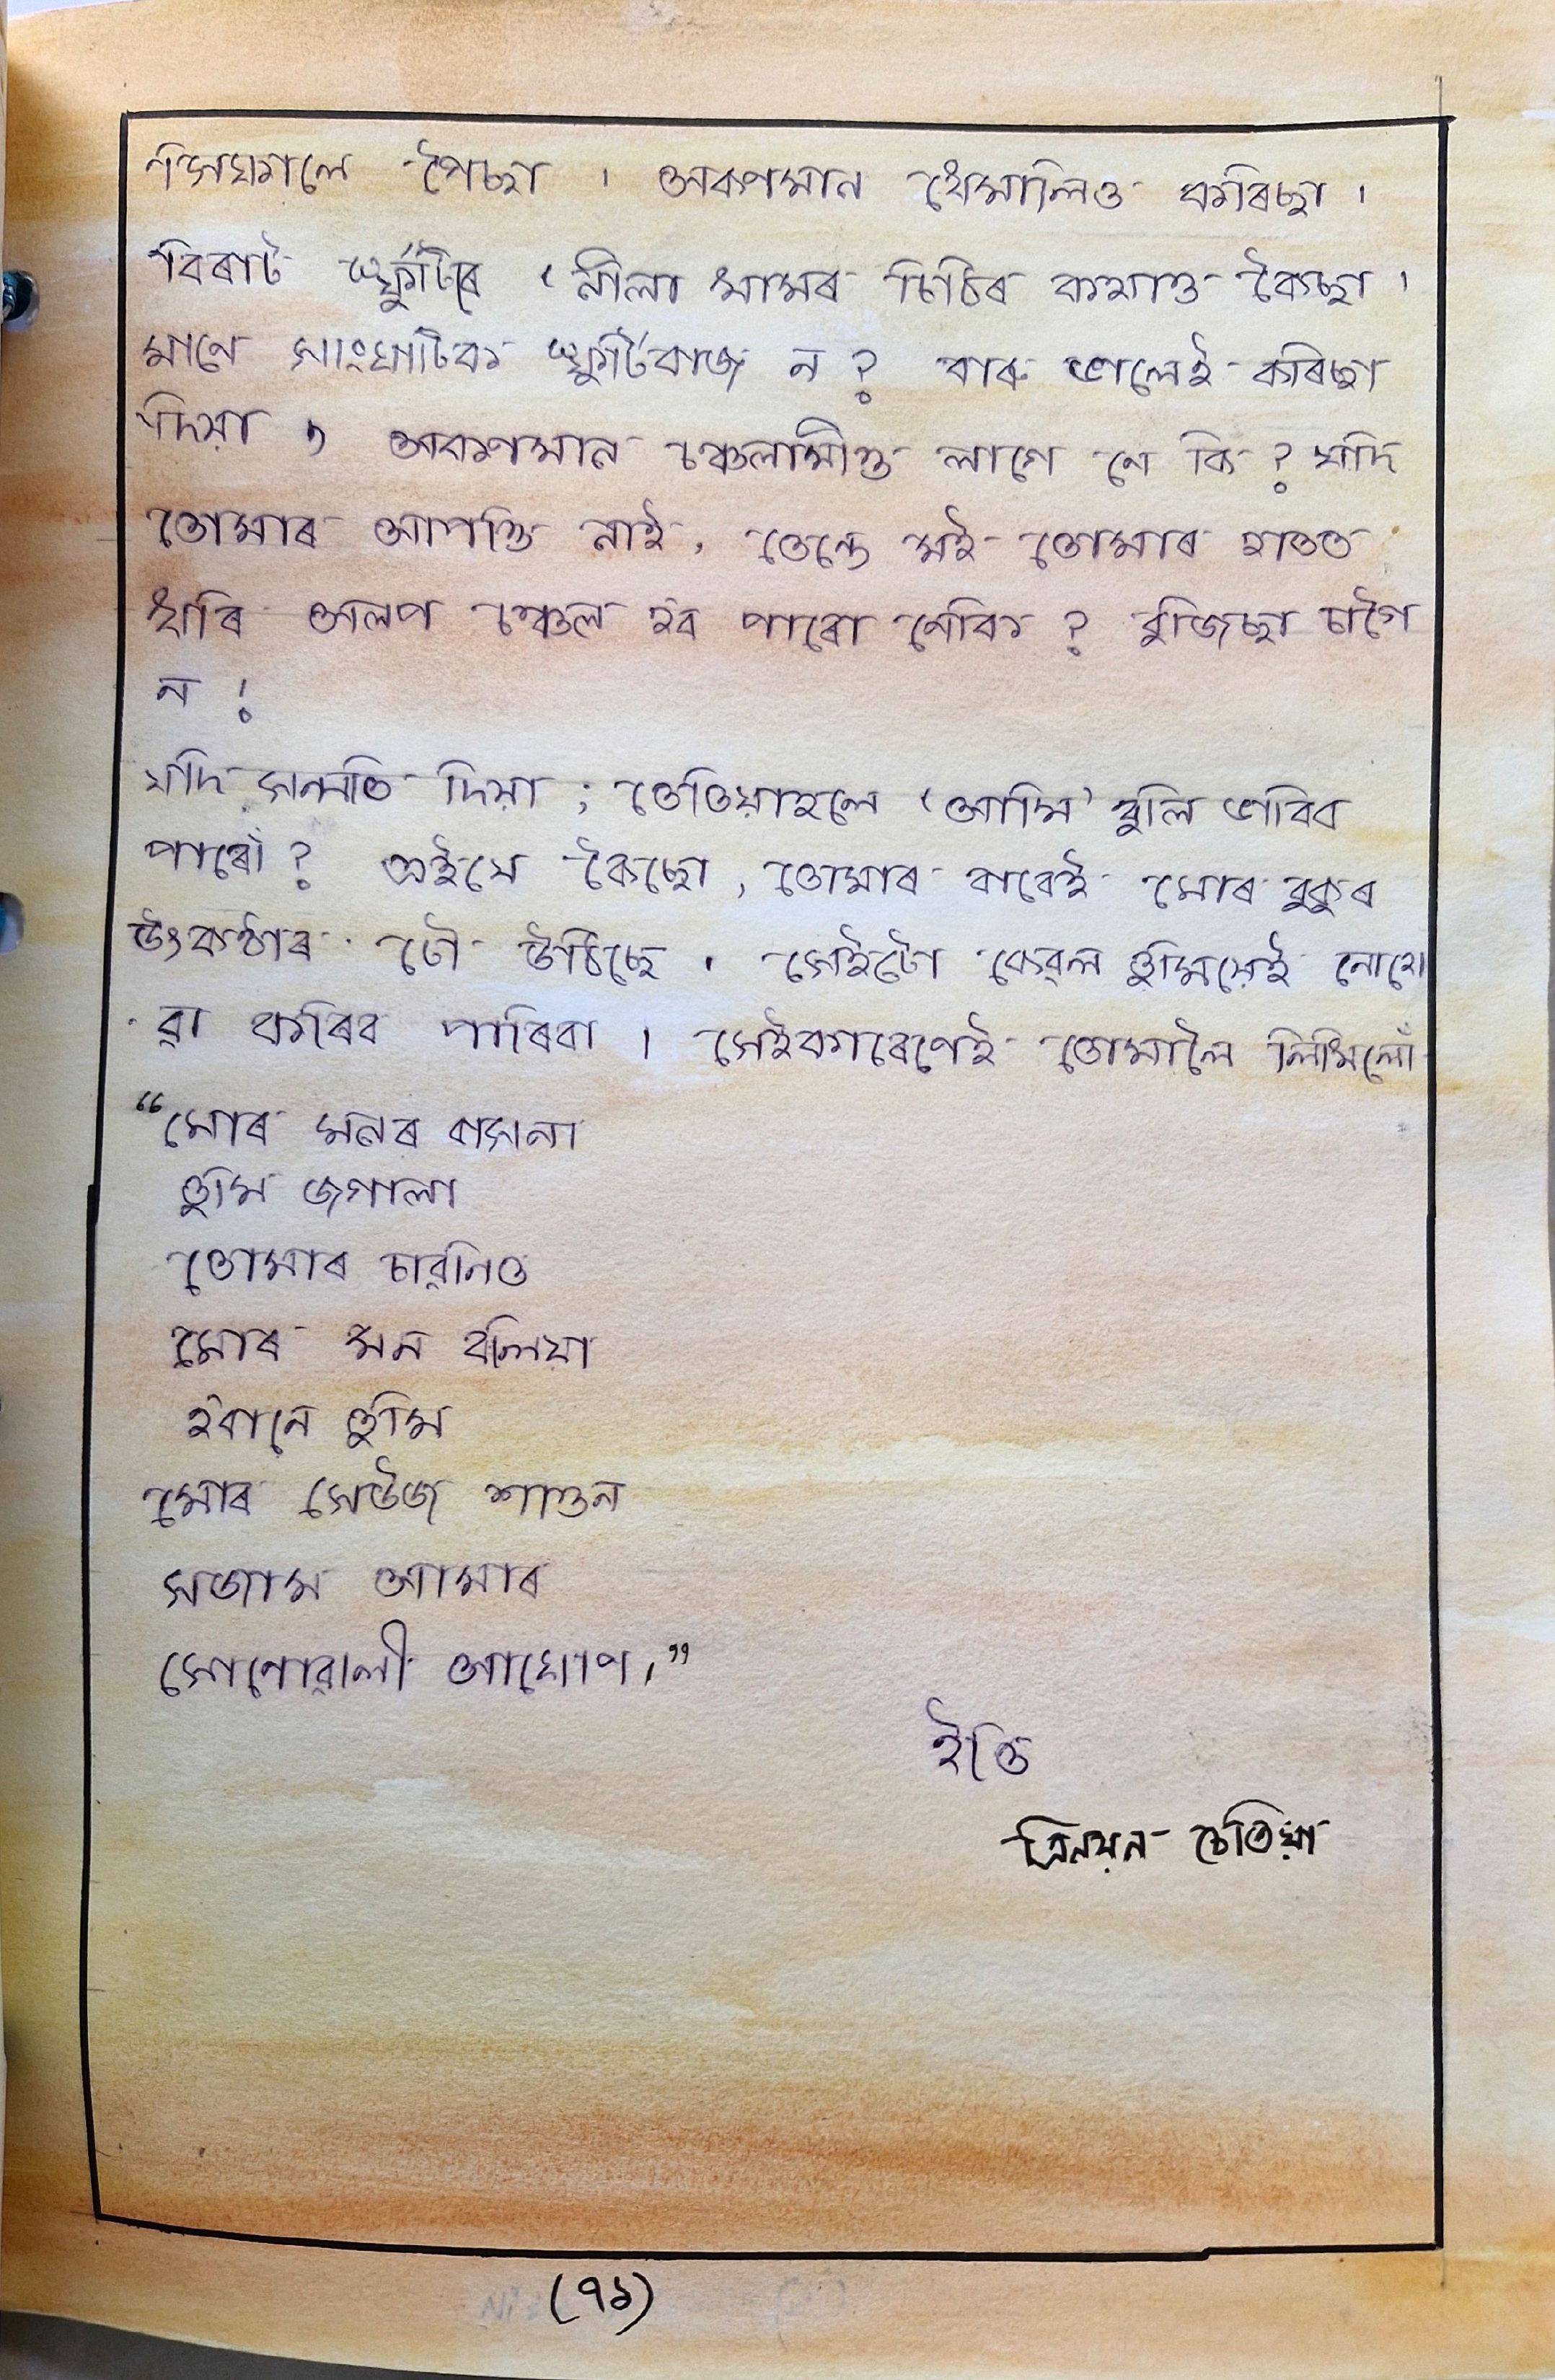 পৈছা । অকণমান ধেমালিও কৰিছা ।
বিৰাট স্ফুৰ্টিৰে ‘নীলা খামৰ চিঠিৰ কথাও কৈছা ।
মানে সাংঘাটিক স্ফুৰ্টিবাজ ন ? বাৰু ভালেই কৰিছা
দিয়া , অকণমান চঞ্চলামীও লাগে নে কি ? যদি
তোমাৰ আপত্তি নাই, তেন্তে মই তোমাৰ হাতত
ধৰি অলপ চঞ্চল হ'ব পাৰো নেকি ? বুজিছা চাগৈ
ন !
যদি সন্মতি দিয়া ; তেতিয়াহলে ‘আমি’ বুলি ভাবিব
পাৰোঁ ? এইযে কৈছো, তোমাৰ বাবেই মোৰ বুকুৰ
উৎকণ্ঠাৰ ঢৌ উঠিছে । সেইটো কেৱল তুমিয়েই নোহো
ৱা কৰিব পাৰিবা । সেইকাৰণেই তোমালৈ লিখিলোঁ
“মোৰ মনৰ বাসনা
তুমি জগালা
তোমাৰ চাৱনিত
মোৰ মন বলিয়া
হ'বানে তুমি
মোৰ সেউজ শাওন
সজাম আমাৰ
সোণোৱালী আঘোণ।”
ইতি
ত্ৰিনয়ন চেতিয়া
(৭১)